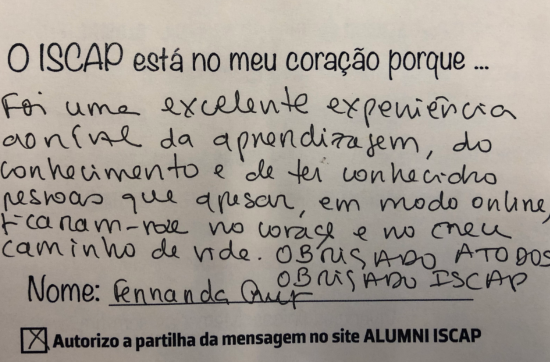 O ISCAP está no meu coração porque ...
Foi uma excelente experiência
ao nível da aprendizagem, do
conhecimento e de ter conhecido
pessoas que apesar, em modo online,
ficaram-me no coraçe e no meu
caminho de vide. OBRIGADO A TODOS
OBRIGADO ISCAP
Nome: Fernanda
☒ Autorizo a partilha da mensagem no site ALUMNI ISCAP